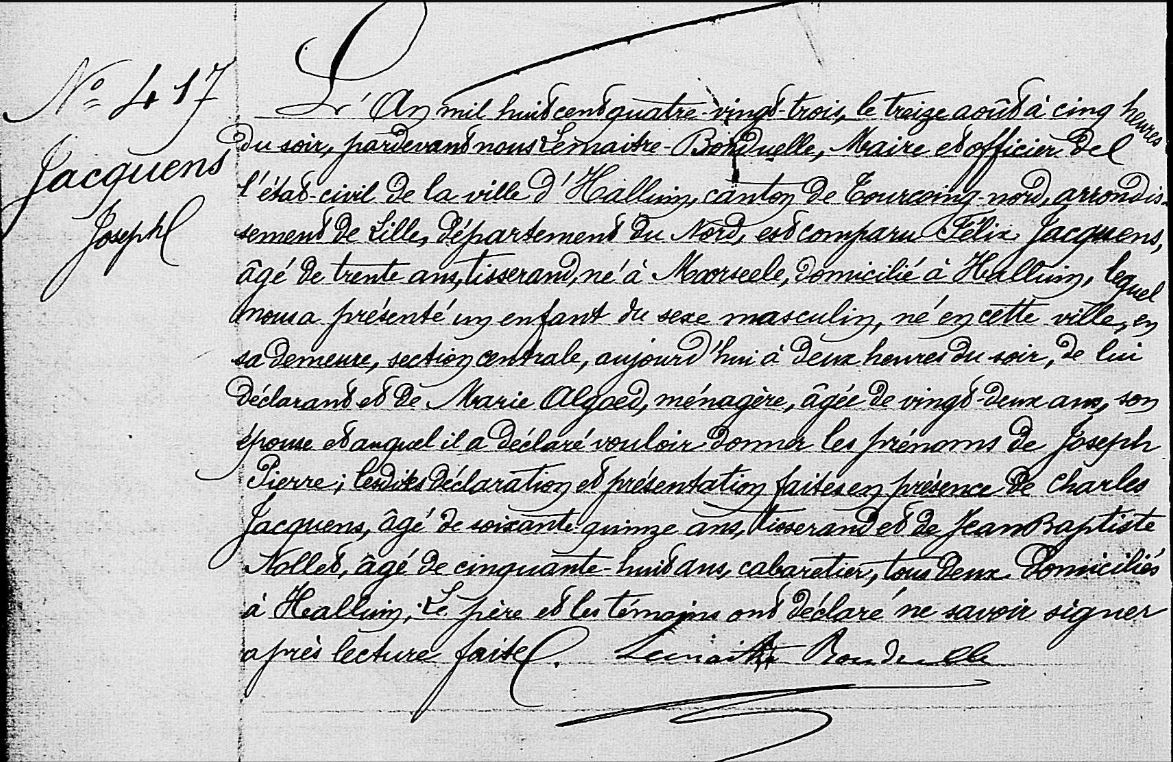 N° 417
Jacquens
Joseph
L'An mil huit cent quatre-vingt-trois, le treize août à cinq heures
du soir, pardevant nous Lemaitre-Bonduelle, Maire et officier de
l'état-civil de la ville d'Halluin, canton de Tourcoing-nord, arrondis-
sement de Lille, département du Nord, est comparu Félix Jacquens,
âgé de trente ans, tisserand, né à Moorseele, domicilié à Halluin, lequel
nous a présenté un enfant du sexe masculin, né en cette ville, en
sa demeure, section centrale, aujourd'hui à deux heures du soir, de lui
déclarant et de Marie Algoed, ménagère, âgée de vingt-deux ans, son
épouse et auquel il a déclaré vouloir donner les prénoms de Joseph
Pierre; lesdites déclaration et présentation faites en présence de Charles
Jacquens, âgé de soixante quinze ans, tisserand et de Jean Baptiste
Nollet, âgé de cinquante-huit ans, cabaretier, tous deux domiciliés
à Halluin; Le père et les témoins ont déclaré ne savoir signer
après lecture faite.
Lemaitre Bonduelle